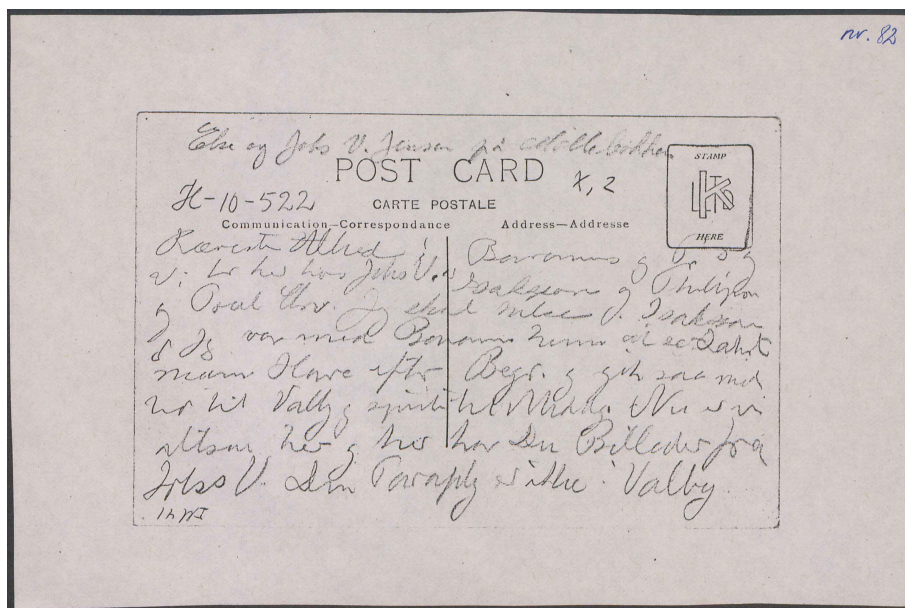 nr. 82
Else og Johs V. Jensen på
POST CARD
X, 2
H-10-522
CARTE POSTALE
STAMP
HERE
Communication—Correspondance
Address—Addresse
Kæreste Alhed!
Vi er her hos Johs V.s
Bonnans og
Isakson og Philipsen
og Poul Chr. Jeg skal hilse f. Isakson
Jeg var med Bonnans henne at se Zahrt
mann Have efter Begr. og gik saa med
her til Valby og spiste til Middag. Nu er vi
altsaa her og her har Du Billeder fra
Johss V. Din Paraply er ikke i Valby.